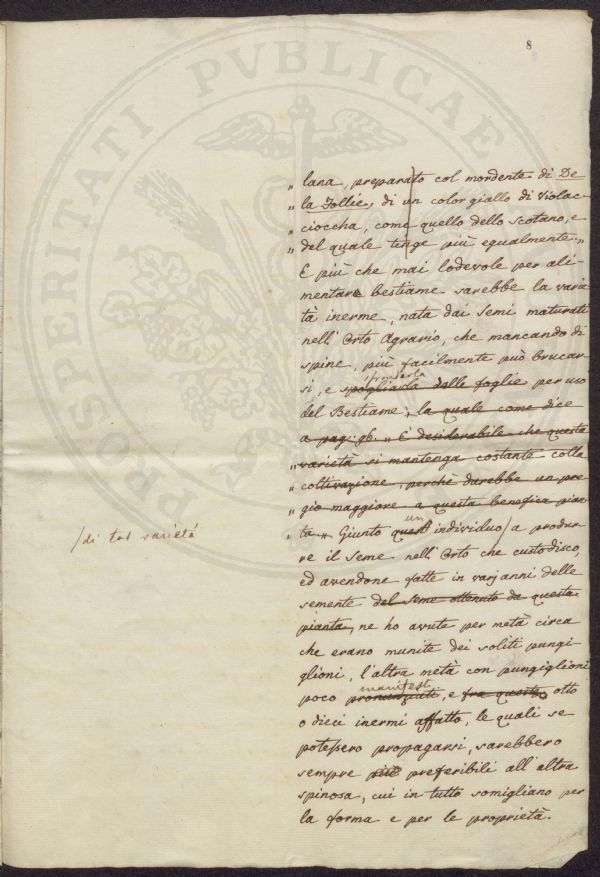 8
„ lana, preparato col mordente di De
„ la Follie, di un color giallo di Violac-
„ cioccha, come quello dello Scotano, e
„ del quale tinge più egualmente „
E più che mai lodevole per ali-
mentare bestiame sarebbe la varie
tà inerme, nata dai Semi maturati
nell' Orto Agrario, che mancando di
spine, più facilmente può brucar-
sfrondarla
si, e spogliarla dalle foglie per uso
del Bestiame, la quale come dice
a pag: 96. „ È desiderabile che questa
„ varietà si mantenga costante colla
„ coltivazione, perchè darebbe un pre
„ gio maggiore a questa benefica pian-
un
„ ta „ Giunto quest individuo / a produr-
/ di tal varietà
re il Seme nell' Orto che custodisco,
ed avendone fatte in varj anni delle
semente del Seme ottenuto da questa
pianta, ne ho avute per metà circa
che erano munite dei soliti pungi-
glioni, l'altra metà con pungiglioni
manifesti
poco pronunziati, e fra queste otto
o dieci inermi affatto, le quali se
potessero propagarsi, sarebbero
sempre più preferibili all' altra
spinosa, cui in tutto somigliano per
la forma e per le proprietà.
PROSPERITATI PVBLICAE